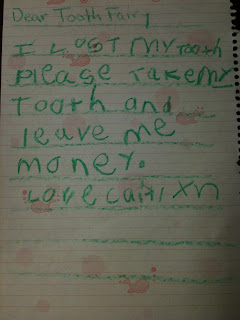 Dear Tooth Fairy
I LOST MY TOOTH
PLeaSe TaKe MY
TOOTH and
leave me
money.
LOVE CaitlXn